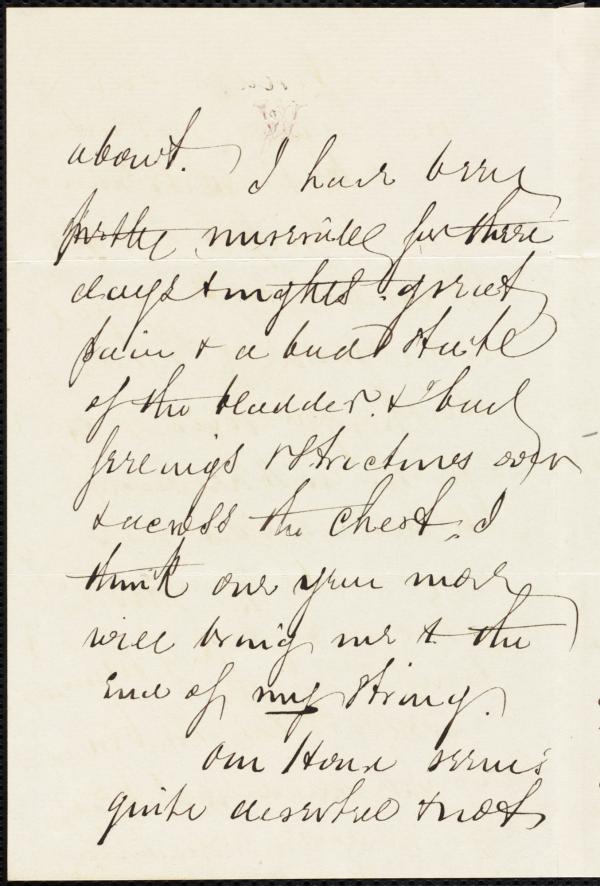 about. I have been
pretty miserable for three
days & nights. great
pain & a bad state
of the bladder. & bad
feelings & strictures over
& across the chest. I
think one year more
will bring me to the
end of my string.
Our House seems
quite deserted & not